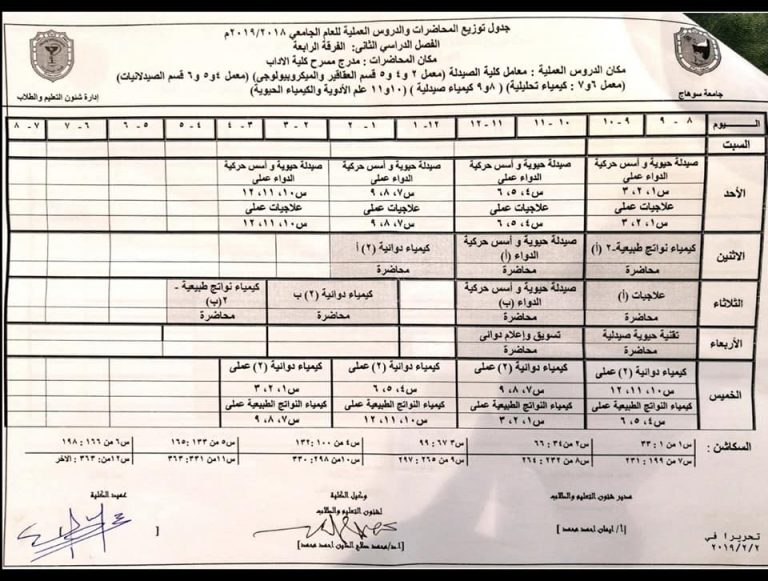 جدول توزيع المحاضرات والدروس العملية للعام الجامعي ٢٠١٩/٢٠١٨م
الفصل الدراسي الثاني: الفرقة الرابعة
مكان المحاضرات : مدرج مسرح كلية الاداب
مكان الدروس العملية : معامل كلية الصيدلة (معمل ٢ و٤ و٥ قسم العقاقير والميكروبيولوجي) (معمل ٤ و٥ و٦ قسم الصيدلانيات)
(معمل ٦ و٧ : كيمياء تحليلية) (٨ و٩ كيمياء صيدلية) (١٠ و١١ علم الأدوية والكيمياء الحيوية)
جامعة سوهاج
إدارة شئون التعليم والطلاب
اليوم ٨ - ٩ ٩ - ١٠ ١٠ - ١١ ١١ - ١٢ ١٢ - ١ ١ - ٢ ٢ - ٣ ٣ - ٤ ٤ - ٥ ٥ - ٦ ٦ - ٧ ٧ - ٨
السبت
الأحد
صيدلة حيوية و أسس حركية الدواء عملى صيدلة حيوية و أسس حركية الدواء عملى صيدلة حيوية و أسس حركية الدواء عملى صيدلة حيوية و أسس حركية الدواء عملى
س١، ٢، ٣ س٤، ٥، ٦ س٧، ٨، ٩ س١٠، ١١، ١٢
علاجيات عملى علاجيات عملى علاجيات عملى علاجيات عملى
س١، ٢، ٣ س٤، ٥، ٦ س٧، ٨، ٩ س١٠، ١١، ١٢
الاثنين
كيمياء نواتج طبيعية-٢ (أ) صيدلة حيوية و أسس حركية الدواء (أ) كيمياء دوائية (٢) أ
محاضرة محاضرة محاضرة
الثلاثاء
علاجيات (أ) صيدلة حيوية و أسس حركية الدواء (ب) كيمياء دوائية (٢) ب كيمياء نواتج طبيعية - ٢ (ب)
محاضرة محاضرة محاضرة محاضرة
الأربعاء
تقنية حيوية صيدلية تسويق وإعلام دوائى
محاضرة محاضرة
الخميس
كيمياء دوائية (٢) عملى كيمياء دوائية (٢) عملى كيمياء دوائية (٢) عملى كيمياء دوائية (٢) عملى
س١٠، ١١، ١٢ س٧، ٨، ٩ س٤، ٥، ٦ س١، ٢، ٣
كيمياء النواتج الطبيعية عملى كيمياء النواتج الطبيعية عملى كيمياء النواتج الطبيعية عملى كيمياء النواتج الطبيعية عملى
س٤، ٥، ٦ س١، ٢، ٣ س١٠، ١١، ١٢ س٧، ٨، ٩
السكاشن : س١ من ١ : ٣٣ س٢ من ٣٤ : ٦٦ س٣ من ٦٧ : ٩٩ س٤ من ١٠٠ : ١٣٢ س٥ من ١٣٣ : ١٦٥ س٦ من ١٦٦ : ١٩٨
س٧ من ١٩٩ : ٢٣١ س٨ من ٢٣٢ : ٢٦٤ س٩ من ٢٦٥ : ٢٩٧ س١٠ من ٢٩٨ : ٣٣٠ س١١ من ٣٣١ : ٣٦٣ س١٢ من : ٣٦٣ : الآخر
مدير شئون التعليم والطلاب
وكيل الكلية
لشئون التعليم والطلاب
عميد الكلية
[أ / ايمان احمد محمد]
[ا.د/محمد صلاح الدين احمد محمد]
تحريرا في
٢٠١٩/٢/٢